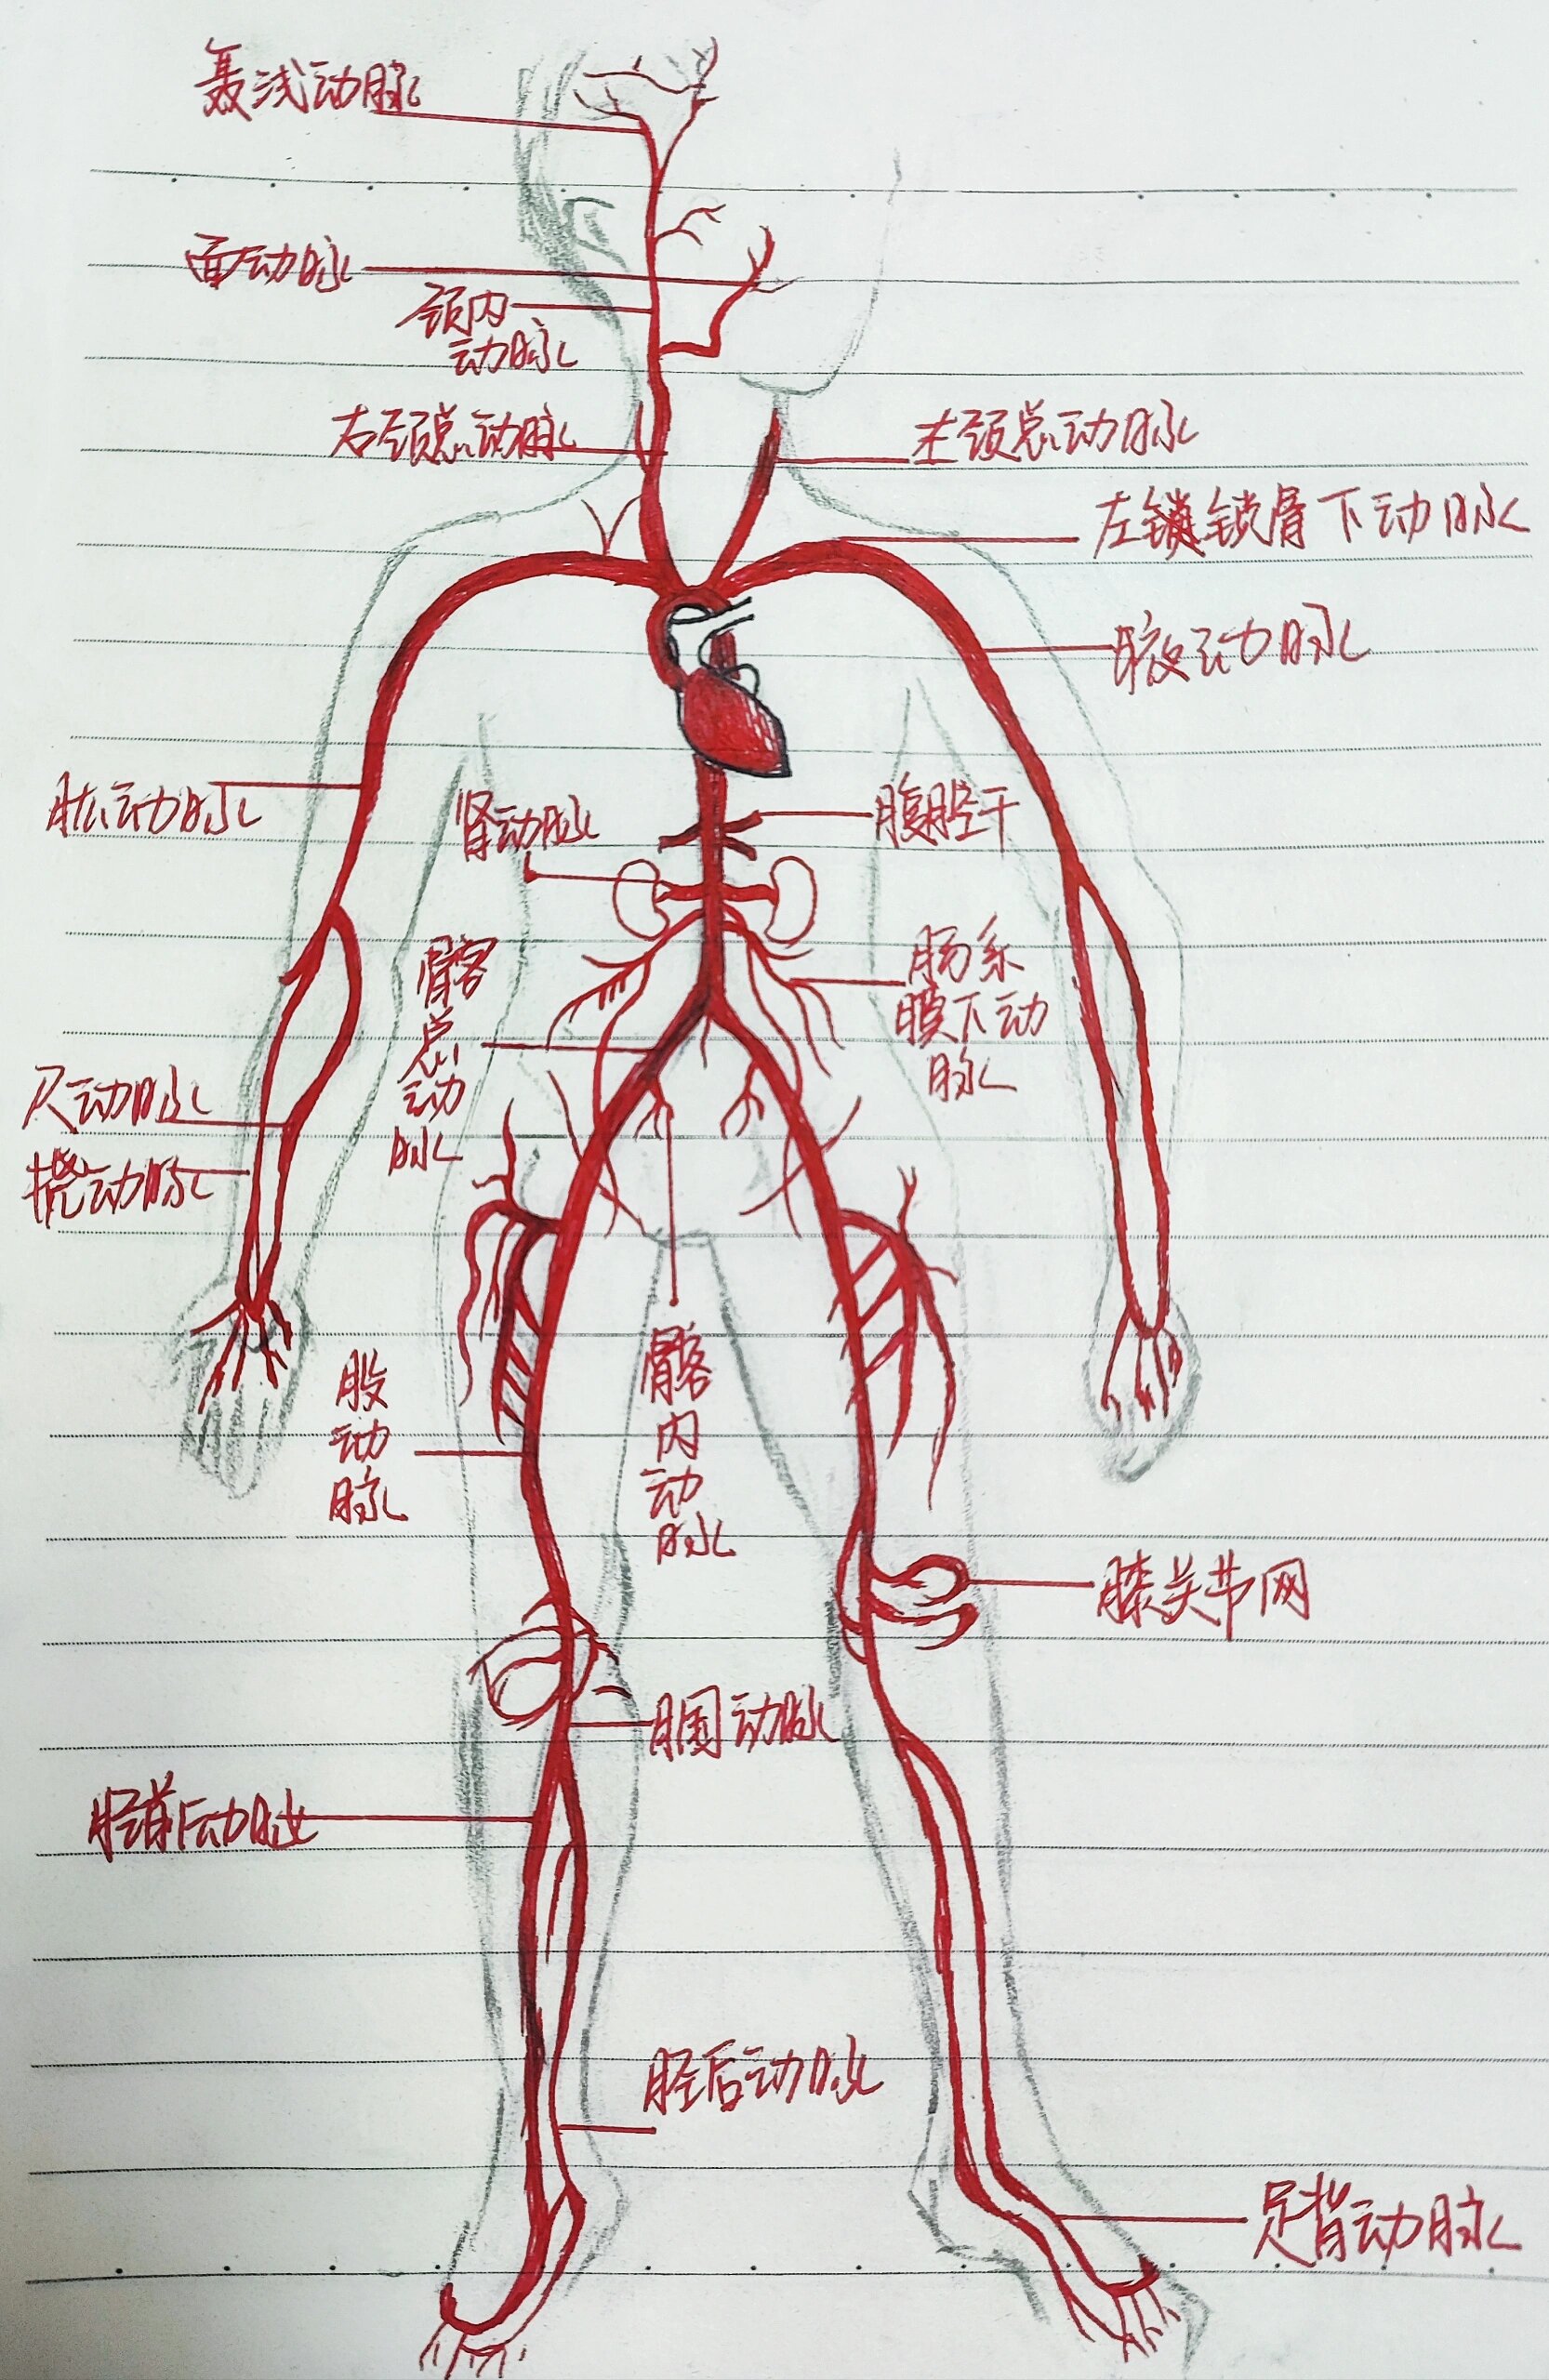 聂浅动脉
面动脉
颈内
动脉
右颈总动脉
左颈总动脉
左锁骨下动脉
腋动脉
肱动脉
肾动脉
腹腔干
髂
总
动
脉
肠系
膜下动
脉
尺动脉
桡动脉
股
动
脉
髂
内
动
脉
膝关节网
腘动脉
胫前动脉
胫后动脉
足背动脉